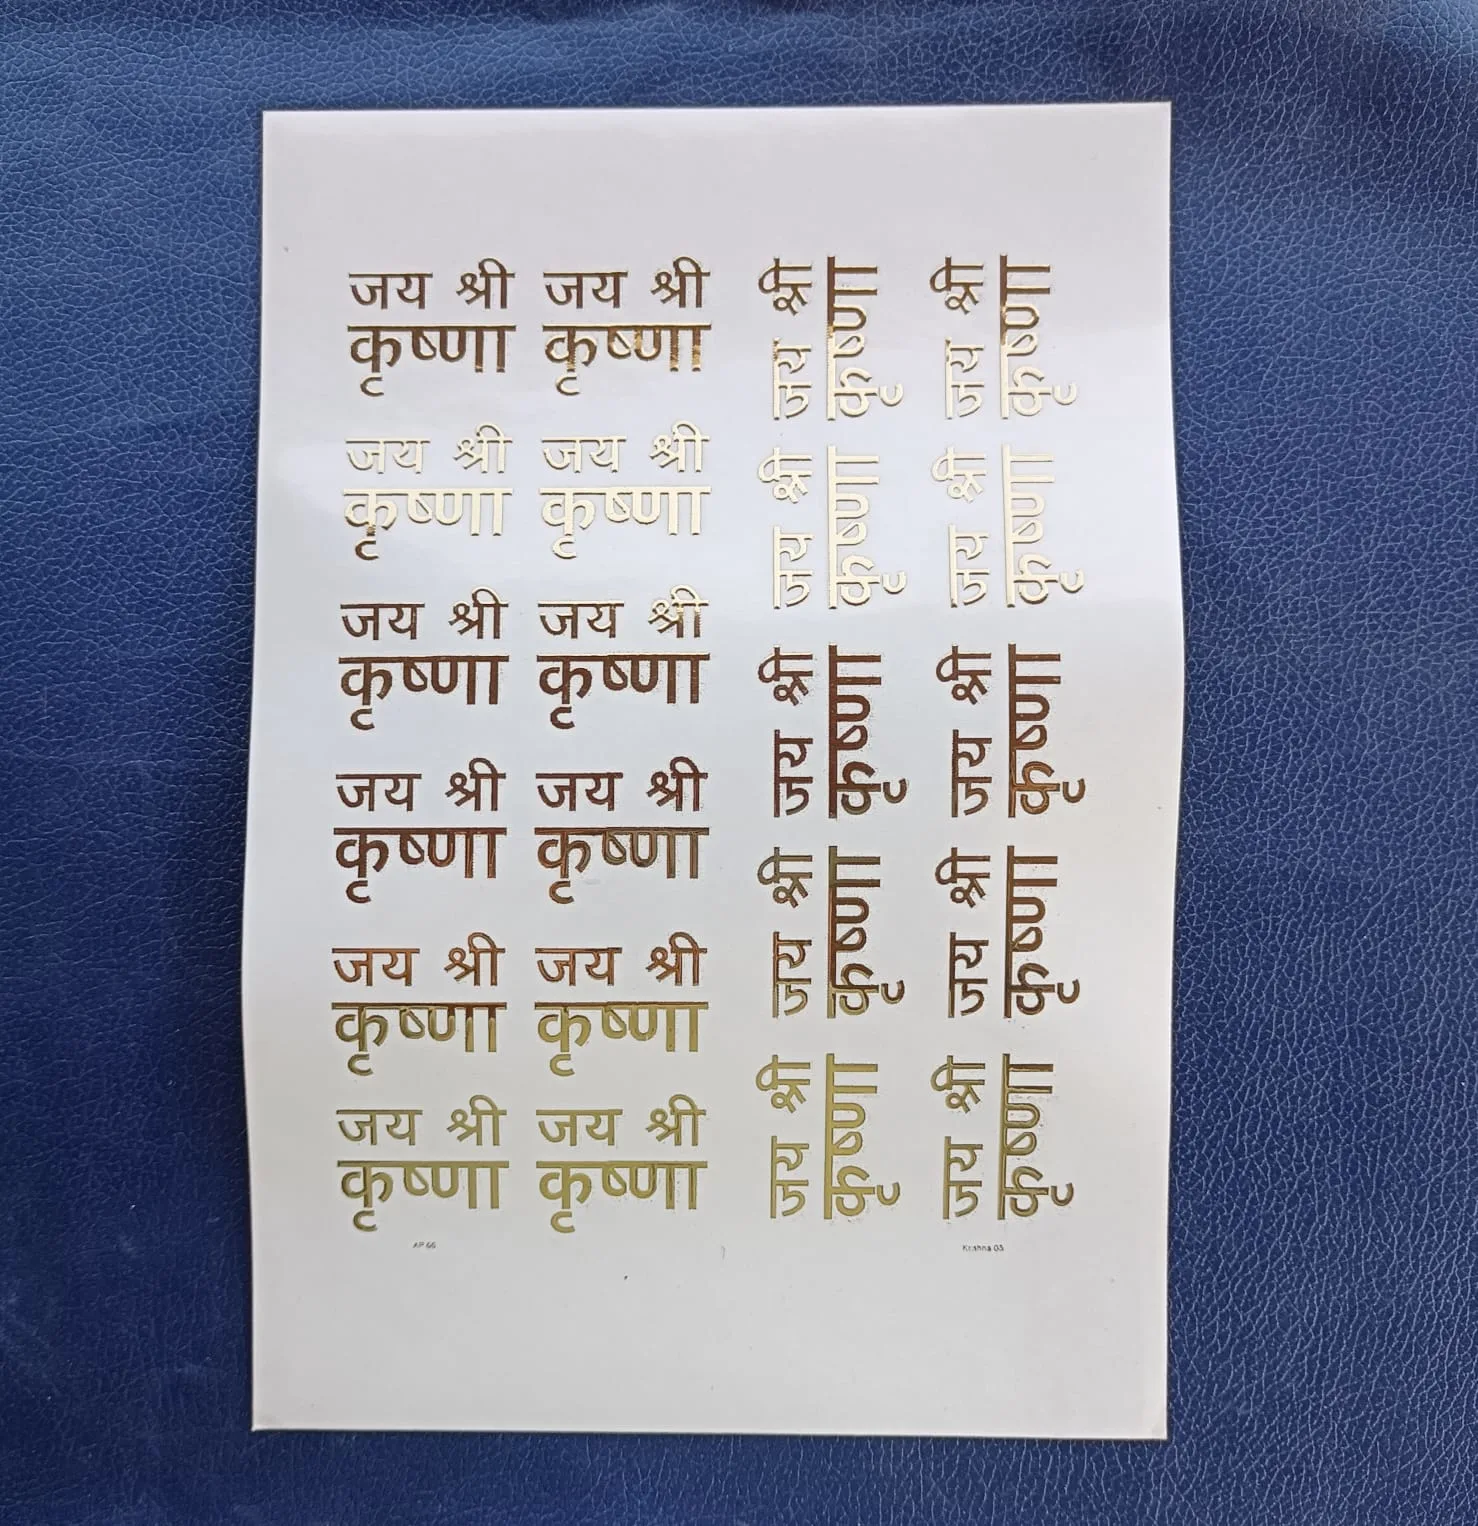 जय श्री
कृष्णा
जय श्री
कृष्णा
जय श्री
कृष्णा
जय श्री
कृष्णा
जय श्री
कृष्णा
जय श्री
कृष्णा
जय श्री
कृष्णा
जय श्री
कृष्णा
जय श्री
कृष्णा
जय श्री
कृष्णा
जय श्री
कृष्णा
जय श्री
कृष्णा
जय श्री
कृष्णा
जय श्री
कृष्णा
जय श्री
कृष्णा
जय श्री
कृष्णा
जय श्री
कृष्णा
जय श्री
कृष्णा
जय श्री
कृष्णा
जय श्री
कृष्णा
जय श्री
कृष्णा
जय श्री
कृष्णा
AP 66
Krishna 03